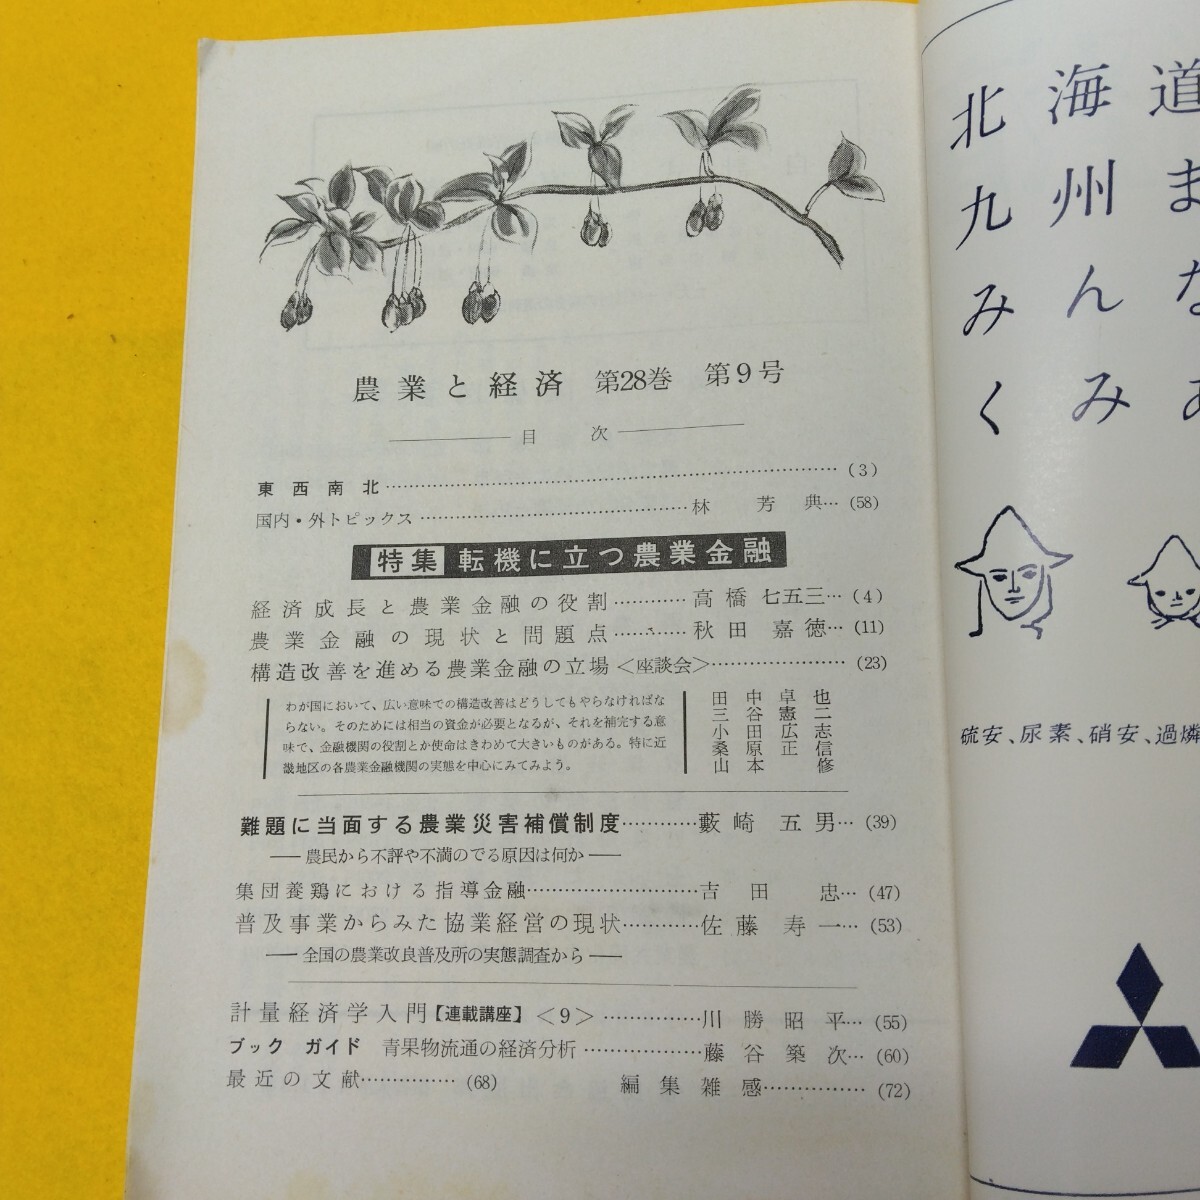 農業と経済 第28巻 第9号
目次
東西南北……(3)
国内・外トピックス……林芳典…(58)
特集 転機に立つ農業金融
経済成長と農業金融の役割……高橋七五三…(4)
農業金融の現状と問題点……秋田嘉徳…(11)
構造改善を進める農業金融の立場<座談会>……(23)
わが国において、広い意味での構造改善はどうしてもやらなければな
らない。そのためには相当の資金が必要となるが、それを補完する意
味で、金融機関の役割とか使命はきわめて大きいものがある。特に近
畿地区の各農業金融機関の実態を中心にみてみよう。
田中卓也
三谷憲二
小田広志
桑原正信
山本修
難題に当面する農業災害補償制度……藪崎五男…(39)
―農民から不評や不満のでる原因は何か―
集団養鶏における指導金融……吉田忠…(47)
普及事業からみた協業経営の現状……佐藤寿一…(53)
―全国の農業改良普及所の実態調査から―
計量経済学入門【連載講座】<9>……川勝昭平…(55)
ブックガイド 青果物流通の経済分析……藤谷築次…(60)
最近の文献……(68) 編集雑感……(72)
北海道
九州ま
みんな
くみ
硫安、尿素、硝安、過燐